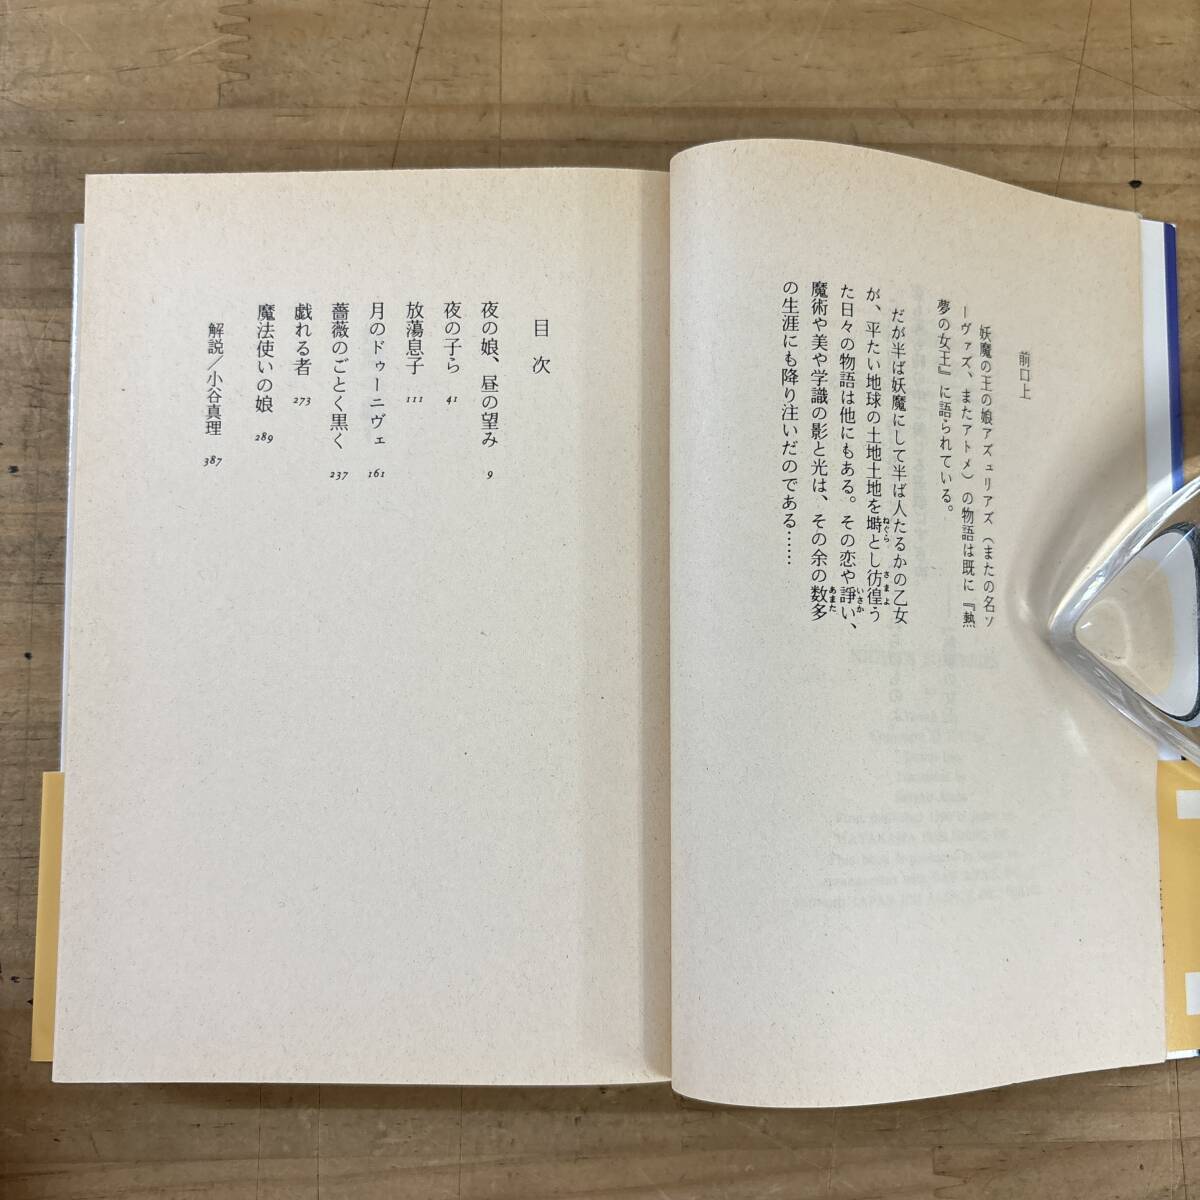 前口上
妖魔の王の娘アズュリアズ（またの名ソ
ーヴァズ、またアトメ）の物語は既に『熱
夢の女王』に語られている。
だが半ば妖魔にして半ば人たるかの乙女
が、平たい地球の土地土地を塒とし彷徨う
た日々の物語は他にもある。その恋や諍い、
魔術や美や学識の影と光は、その余の数多
の生涯にも降り注いだのである……
目次
夜の娘、昼の望み 9
夜の子ら 41
放蕩息子 111
月のドゥーニヴェ 161
薔薇のごとく黒く 237
戯れる者 273
魔法使いの娘 289
解説／小谷真理 387